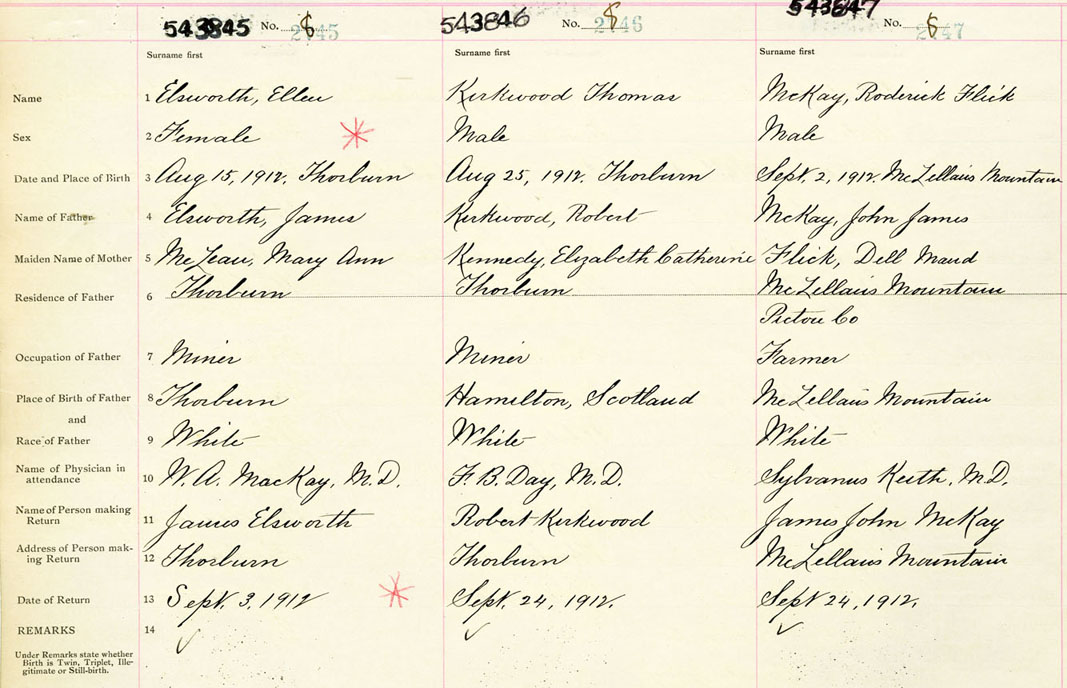 543845 No. 2145 543846 No. 2146 543847 No. 2147
Surname first Surname first Surname first
Name 1 Elsworth, Ellen Kirkwood Thomas McKay, Roderick Flick
Sex 2 Female Male Male
Date and Place of Birth 3 Aug 15, 1912. Thorburn Aug 25, 1912. Thorburn Sept. 2, 1912. McLellans Mountain
Name of Father 4 Elsworth, James Kirkwood, Robert McKay, John James
Maiden Name of Mother 5 McLean, Mary Ann Kennedy, Elizabeth Catherine Flick, Dell Maud
Residence of Father 6 Thorburn Thorburn McLellans Mountain
Pictou Co
Occupation of Father 7 Miner Miner Farmer
Place of Birth of Father 8 Thorburn Hamilton, Scotland McLellans Mountain
and
Race of Father 9 White White White
Name of Physician in
attendance 10 W. A. MacKay, M.D. F. B. Day, M.D. Sylvanus Keith, M.D.
Name of Person making
Return 11 James Elsworth Robert Kirkwood James John McKay
Address of Person mak-
ing Return 12 Thorburn Thorburn McLellans Mountain
Date of Return 13 Sept. 3, 1912 Sept. 24, 1912. Sept 24, 1912.
REMARKS 14
Under Remarks state whether
Birth is Twin, Triplet, Ille-
gitimate or Still-birth.